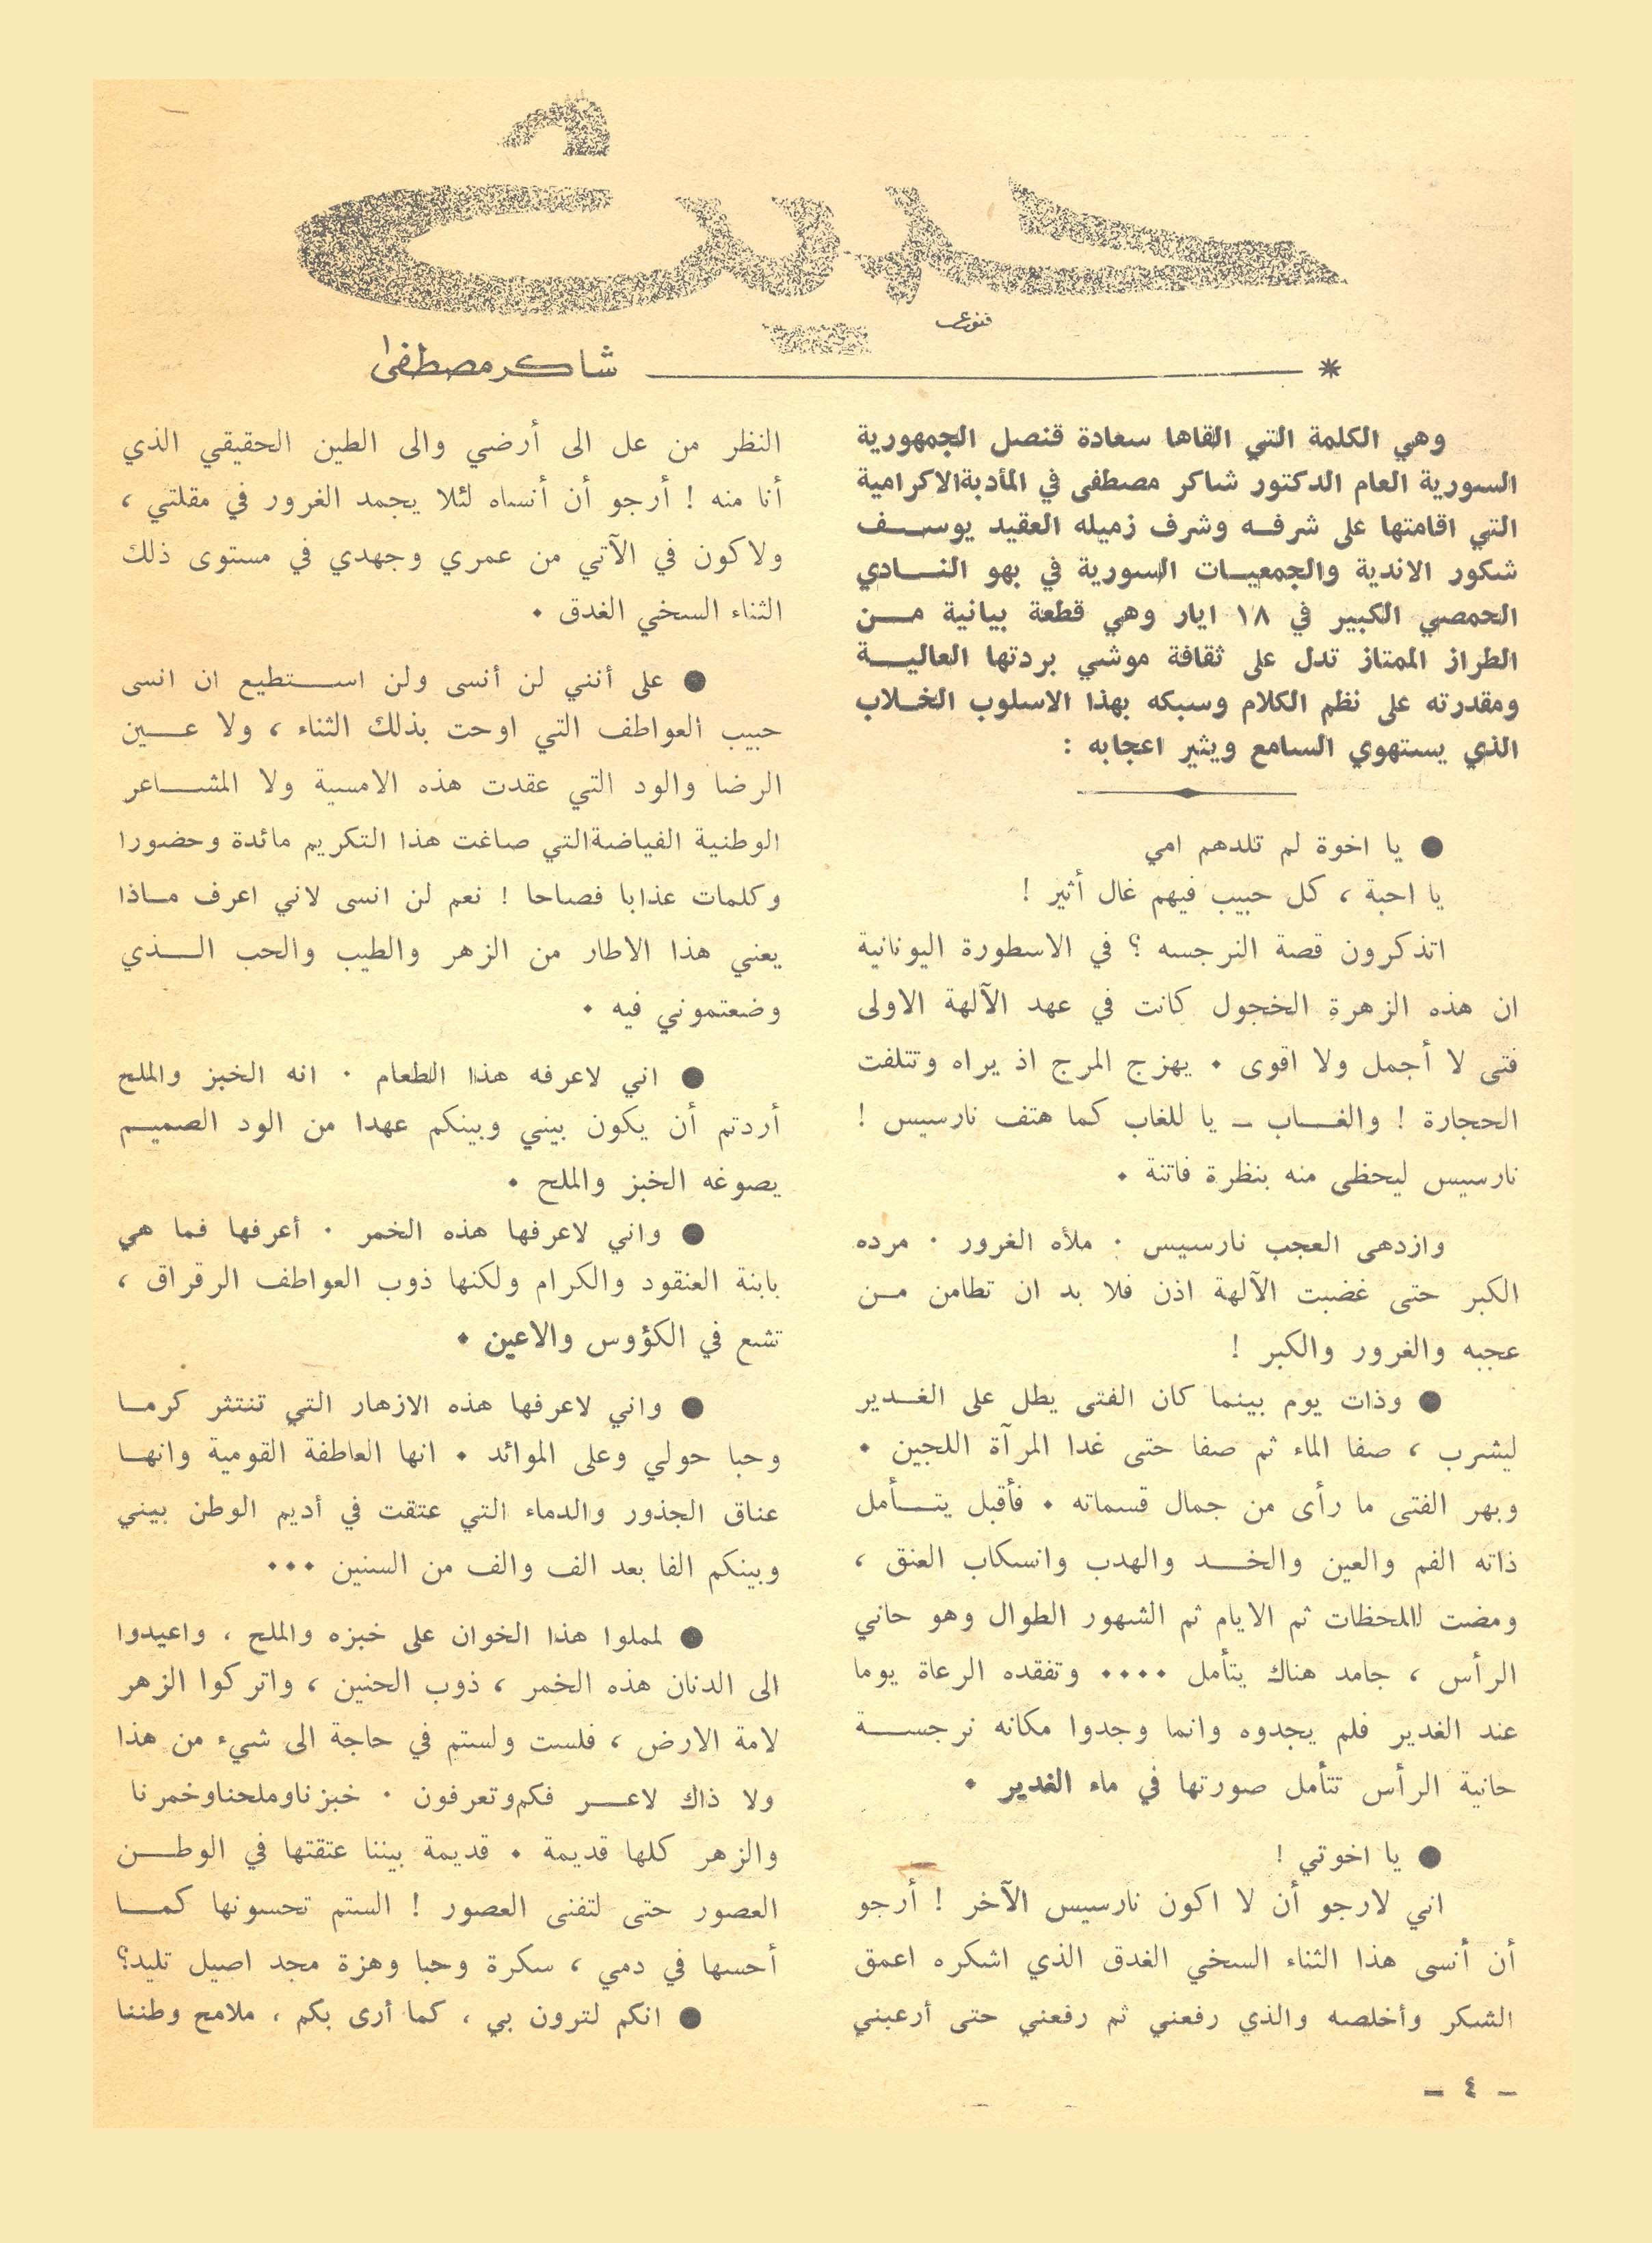 حديث
فنوع
شاكر مصطفى
*
وهي الكلمة التي القاها سعادة قنصل الجمهورية
السورية العام الدكتور شاكر مصطفى في المأدبة الاكرامية
التي اقامتها على شرفه وشرف زميله العقيد يوسف
شكور الاندية والجمعيات السورية في بهو النادي
الحمصي الكبير في ١٨ ايار وهي قطعة بيانية من
الطراز الممتاز تدل على ثقافة موشي بردتها العالية
ومقدرته على نظم الكلام وسبكه بهذا الاسلوب الخلاب
الذي يستهوي السامع ويثير اعجابه :
● يا اخوة لم تلدهم امي
يا احبة ، كل حبيب فيهم غال أثير !
اتذكرون قصة النرجسه ؟ في الاسطورة اليونانية
ان هذه الزهرة الخجول كانت في عهد الآلهة الاولى
فتى لا أجمل ولا اقوى ٠ يهزج المرج اذ يراه وتتلفت
الحجارة ! والغاب ــ يا للغاب كما هتف نارسيس !
نارسيس ليحظى منه بنظرة فاتنة ٠
وازدهى العجب نارسيس ٠ ملأه الغرور ٠ مرده
الكبر حتى غضبت الآلهة اذن فلا بد ان تطامن من
عجبه والغرور والكبر !
● وذات يوم بينما كان الفتى يطل على الغدير
ليشرب ، صفا الماء ثم صفا حتى غدا المرآة اللجين ٠
وبهر الفتى ما رأى من جمال قسماته ٠ فأقبل يتأمل
ذاته الفم والعين والخد والهدب وانسكاب العنق ،
ومضت اللحظات ثم الايام ثم الشهور الطوال وهو حاني
الرأس ، جامد هناك يتأمل ٠٠٠٠ وتفقده الرعاة يوما
عند الغدير فلم يجدوه وانما وجدوا مكانه نرجسة
حانية الرأس تتأمل صورتها في ماء الغدير ٠
● يا اخوتي !
اني لارجو أن لا اكون نارسيس الآخر ! أرجو
أن أنسى هذا الثناء السخي الغدق الذي اشكره اعمق
الشكر وأخلصه والذي رفعني ثم رفعني حتى أرعبني
النظر من عل الى أرضي والى الطين الحقيقي الذي
أنا منه ! أرجو أن أنساه لئلا يجمد الغرور في مقلتي ،
ولاكون في الآتي من عمري وجهدي في مستوى ذلك
الثناء السخي الغدق ٠
● على أنني لن أنسى ولن استطيع ان انسى
حبيب العواطف التي اوحت بذلك الثناء ، ولا عين
الرضا والود التي عقدت هذه الامسية ولا المشاعر
الوطنية الفياضة التي صاغت هذا التكريم مائدة وحضورا
وكلمات عذابا فصاحا ! نعم لن انسى لاني اعرف ماذا
يعني هذا الاطار من الزهر والطيب والحب الذي
وضعتموني فيه ٠
● اني لاعرفه هذا الطعام ٠ انه الخبز والملح
أردتم أن يكون بيني وبينكم عهدا من الود الصميم
يصوغه الخبز والملح ٠
● واني لاعرفها هذه الخمر ٠ أعرفها فما هي
بابنة العنقود والكرام ولكنها ذوب العواطف الرقراق ،
تشع في الكؤوس والاعين ٠
● واني لاعرفها هذه الازهار التي تنتثر كرما
وحبا حولي وعلى الموائد ٠ انها العاطفة القومية وانها
عناق الجذور والدماء التي عتقت في أديم الوطن بيني
وبينكم الفا بعد الف والف من السنين ٠٠٠
● لملوا هذا الخوان على خبزه والملح ، واعيدوا
الى الدنان هذه الخمر ، ذوب الحنين ، واتركوا الزهر
لامة الارض ، فلست ولستم في حاجة الى شيء من هذا
ولا ذاك لاعرفكم وتعرفون ٠ خبزنا وملحنا وخمرنا
والزهر كلها قديمة ٠ قديمة بيننا عتقتها في الوطن
العصور حتى لتفنى العصور ! الستم تحسونها كما
أحسها في دمي ، سكرة وحبا وهزة مجد اصيل تليد؟
● انكم لترون بي ، كما أرى بكم ، ملامح وطننا
– ٤ –